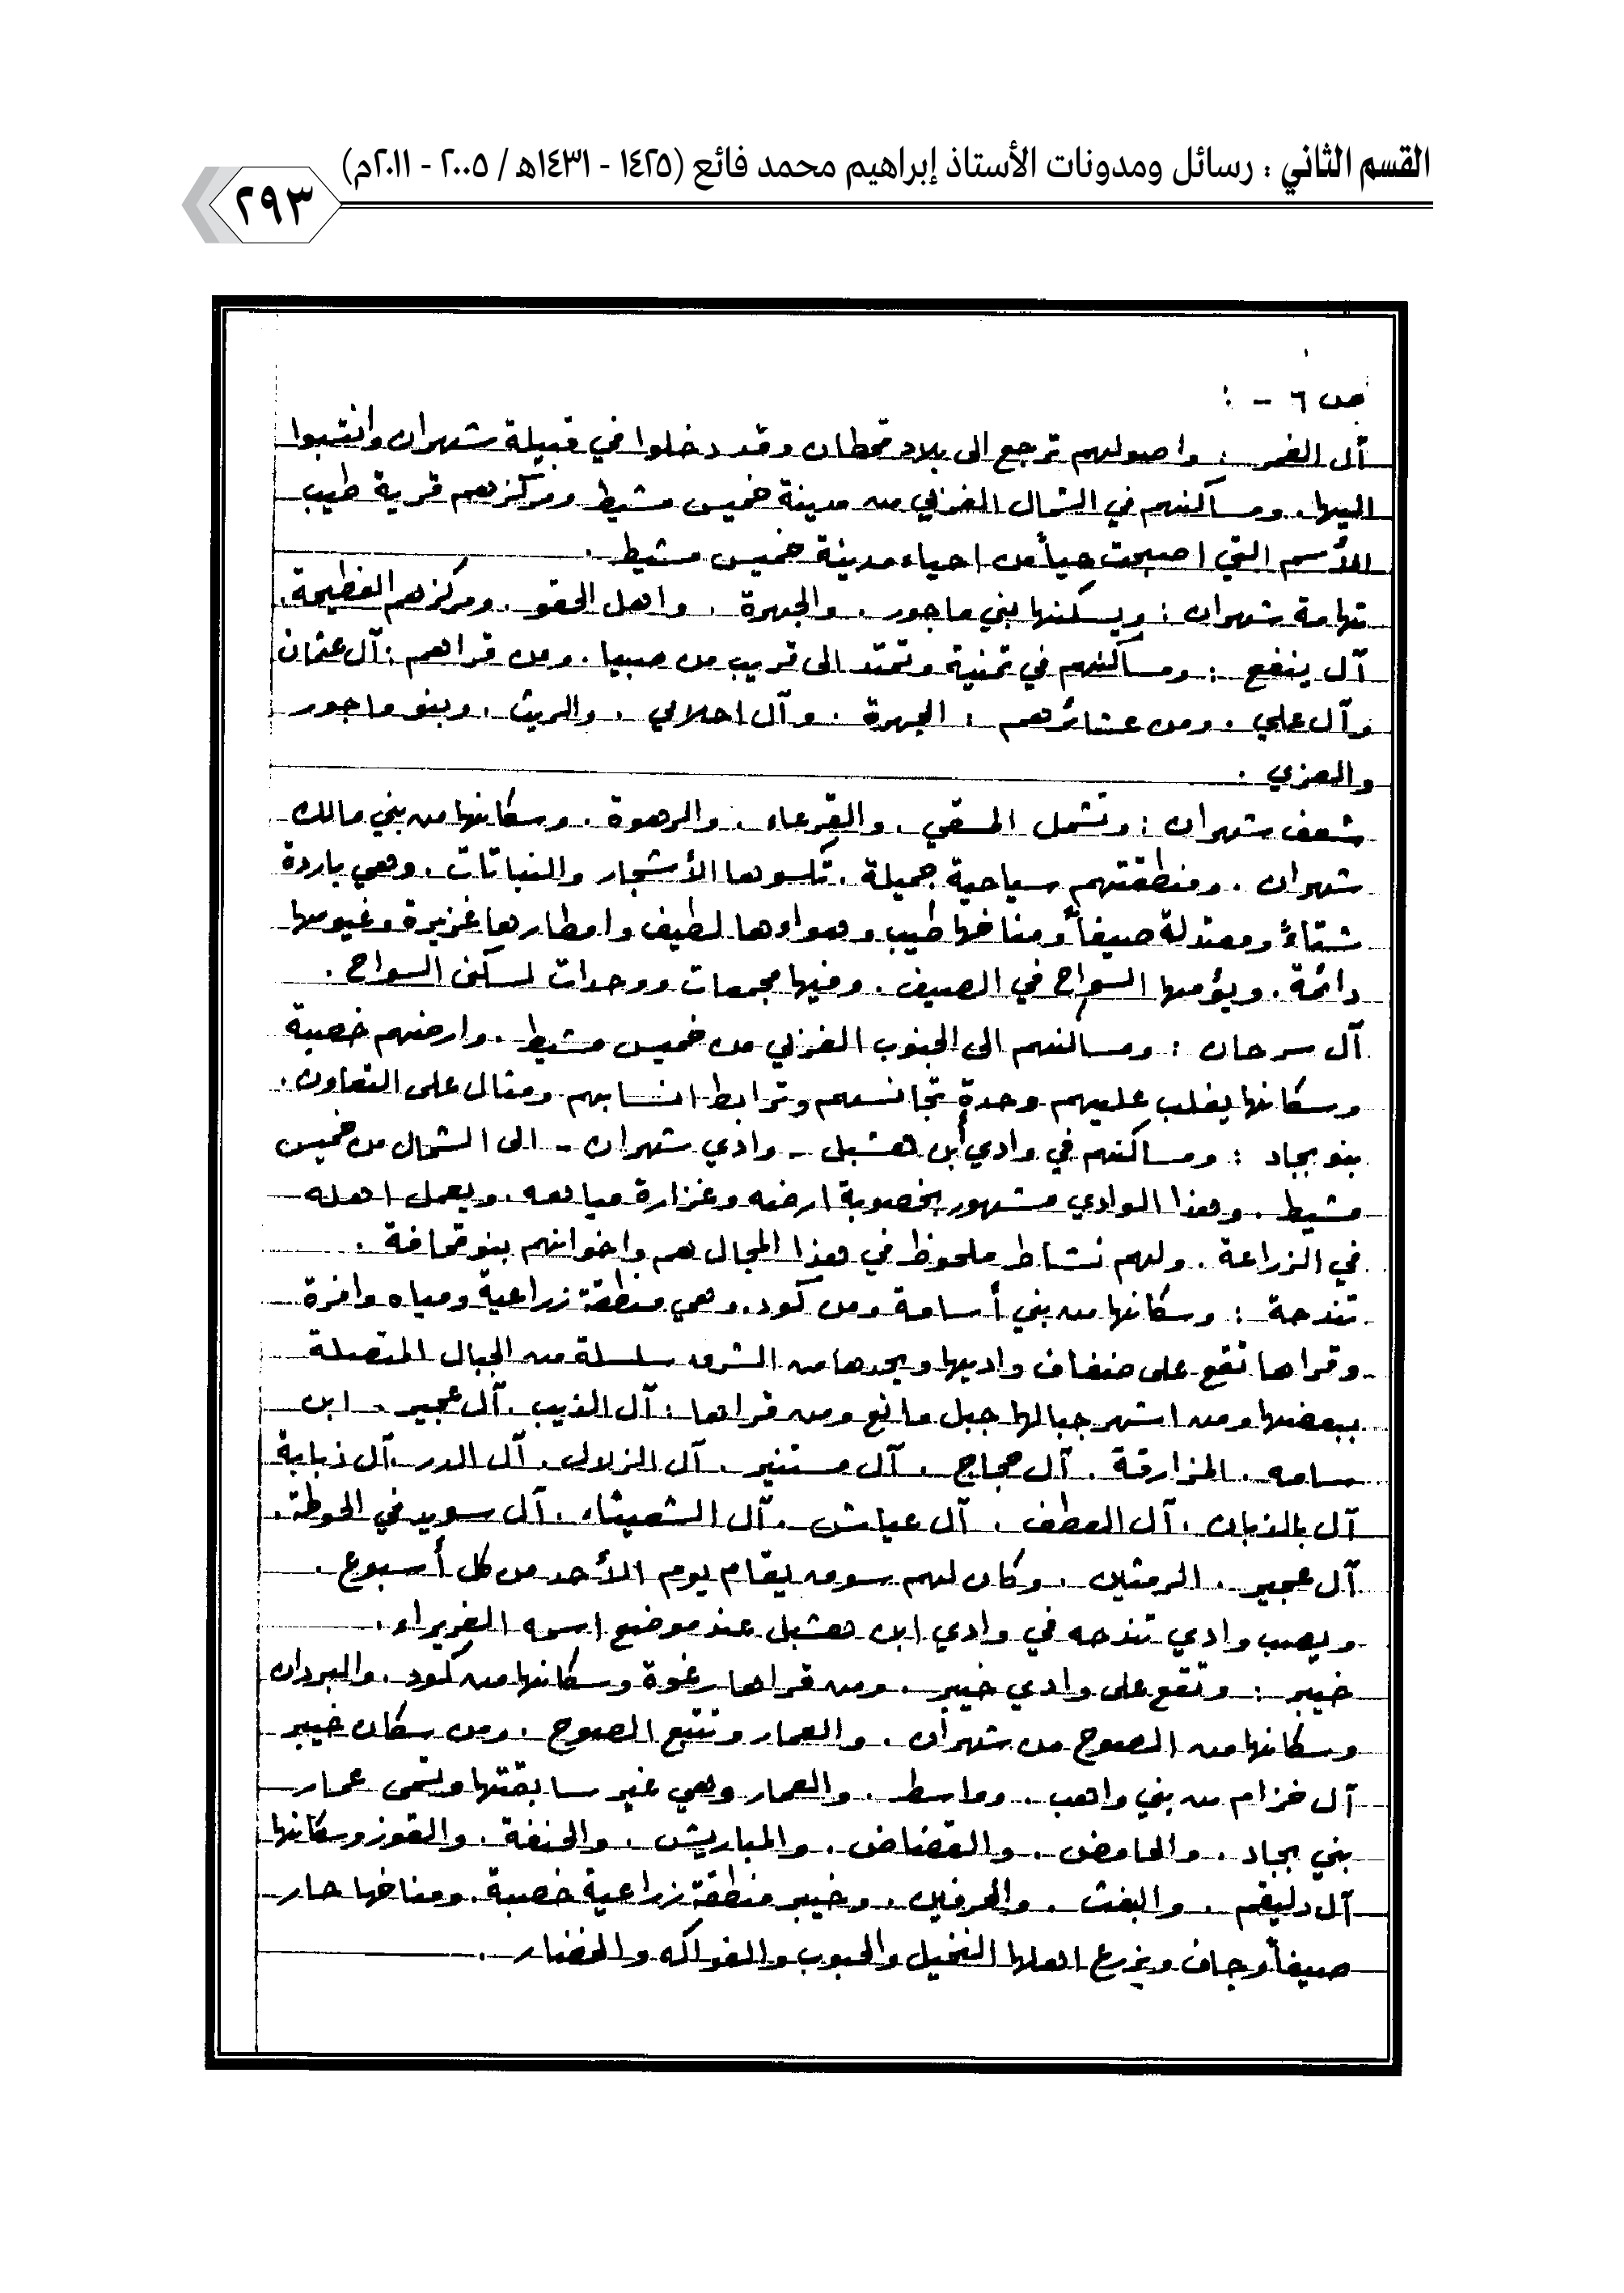 القسم الثاني : رسائل ومدونات الأستاذ إبراهيم محمد فائع (١٤٢٥ - ١٤٣١هـ / ٢٠٠٥ - ٢٠١١م)
٢٩٣
ص ٦ - :
آل الغمر : واصولهم ترجع الى بلاد قحطان وقد دخلوا في قبيلة شهران وانتسبوا
اليها . ومساكنهم في الشمال الغربي من مدينة خميس مشيط ومركزهم قرية طيب
الأسم التي اصبحت حياً من احياء مدينة خميس مشيط .
تهامة شهران : ويسكنها بني ماجور . والجهرة . واهل الحقو . ومركزهم الفطيحة .
آل ينفع : ومساكنهم في تمنية وتمتد الى قريب من صبيا . ومن قراهم : آل عثمان
وآل علي . ومن عشائرهم : الجهرة . وآل احلامي . والريث . وبنو ماجور
والعزي .
شعف شهران : وتشمل المسقي . والقرعاء . والرهوة . وسكانها من بني مالك
شهران . ومنطقتهم سياحية جميلة . تكسوها الأشجار والنباتات . وهي باردة
شتاءً ومعتدلة صيفاً ومناخها طيب وهواءها لطيف وامطارها غزيرة وغيومها
دائمة . ويؤمها السواح في الصيف . وفيها مجمعات ووحدات لسكن السواح .
آل سرحان : ومساكنهم الى الجنوب الغربي من خميس مشيط . وارضهم خصبة
وسكانها يغلب عليهم وحدة تجانسهم وترابط انسابهم ومثال على التعاون .
بنو بجاد : ومساكنهم في وادي أبن هشبل - وادي شهران - الى الشمال من خميس
مشيط . وهذا الوادي مشهور بخصوبة ارضه وغزارة مياهه . ويعمل اهله
في الزراعة . ولهم نشاط ملحوظ في هذا المجال هم واخوانهم بنو قحافة .
تندحة : وسكانها من بني أسامة ومن كود . وهي منطقة زراعية ومياه وافرة
وقراها تقع على ضفاف واديها ويحدها من الشرق سلسلة من الجبال المتصلة
ببعضها ومن اشهر جبالها جبل مانع ومن قراها : آل الذيب . آل عجير . ابن
سامه . المزارقة . آل حجاج . آل مستنير . آل الزلال . آل الدر . آل ذبابة
آل بالذبان . آل العطف . آل عياش . آل الشعيثاء . آل سويد في الحوطة .
آل عجير . الرمثين . وكان لهم سوق يقام يوم الأحد من كل أسبوع .
ويصب وادي تندحه في وادي ابن هشبل عند موضع اسمه الغريراء .
خيبر : وتقع على وادي خيبر . ومن قراها رغوة وسكانها من كود . والبردان
وسكانها من الصوح من شهران . والعمار وتتبع الصوح . ومن سكان خيبر
آل خزام من بني واهب . وماسط . والعمار وهي غير سابقتها وتسمى عمار
بني بجاد . والحامض . والقضاض . والمباريش . والحنفة . والقوز وسكانها
آل دليقم . والبغث . والحرفين . وخيبر منطقة زراعية خصبة . ومناخها حار
صيفاً وجاف ويزرع اهلها النخيل والحبوب والفواكه والخضار .